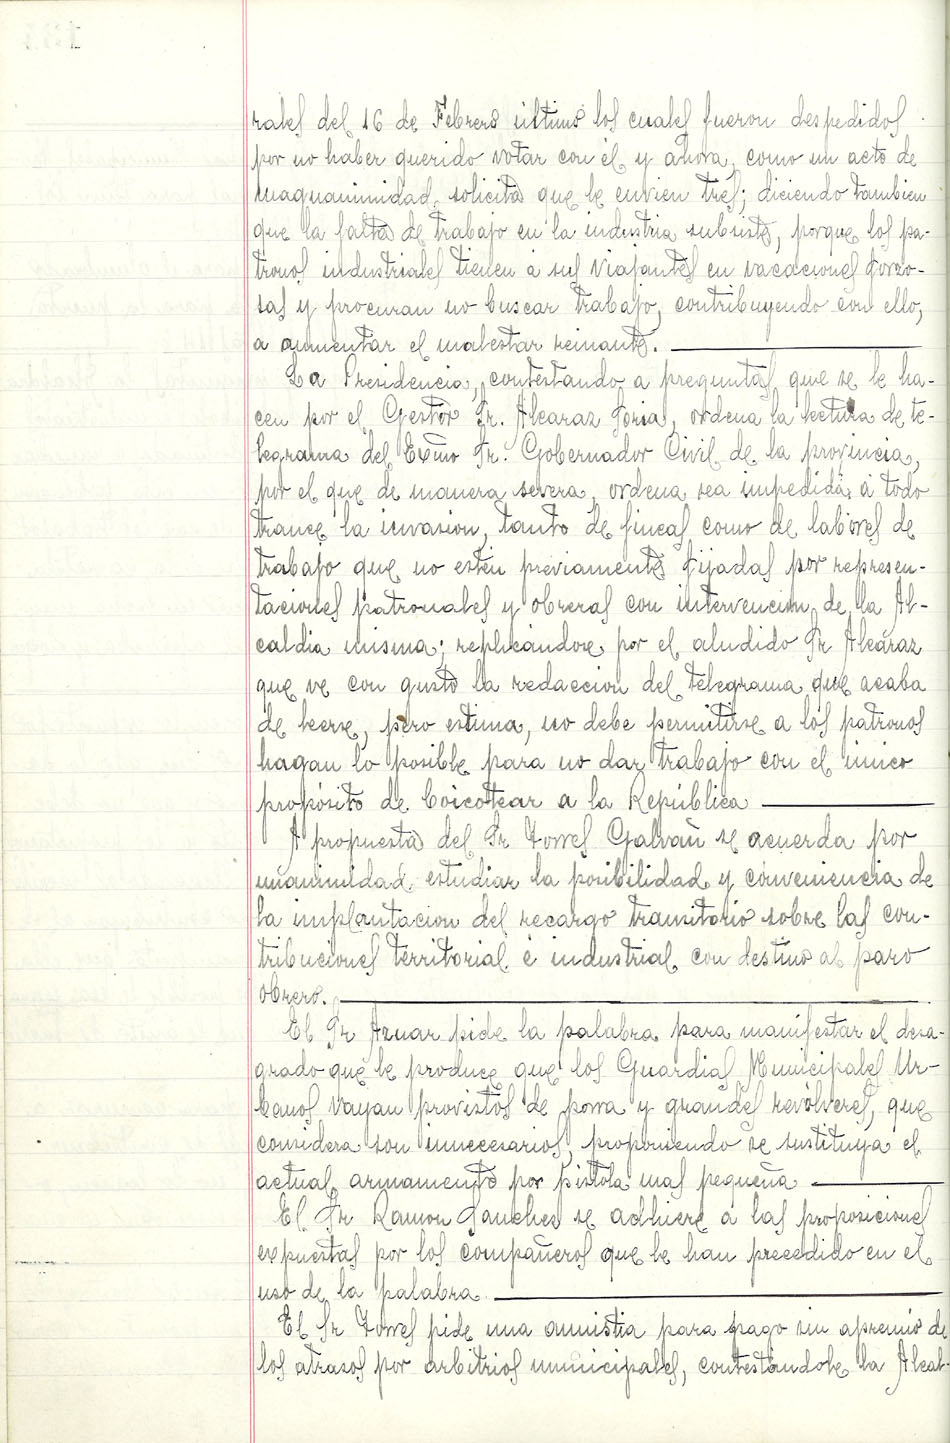 rales del 16 de Febrero ultimo los cuales fueron despedidos
por no haber querido votar con él y ahora, como un acto de
magnanimidad, solicita que le envien tres; diciendo tambien
que la falta de trabajo en la industria subsiste, porque los pa-
tronos industriales tienen a sus viajantes en vacaciones forzo-
sas y procuran no buscar trabajo, contribuyendo con ello,
a aumentar el malestar reinante.
La Presidencia, contestando a preguntas que se le ha-
cen por el Gestor Sr. Alcaraz Soria, ordena la lectura de te-
legrama del Exmo Sr. Gobernador Civil de la provincia,
por el que de manera severa, ordena sea impedida, á todo
trance la invasion, tanto de fincas como de labores de
trabajo que no esten previamente fijadas por represen-
taciones patronales y obreras con intervencion de la Al-
caldia misma; replicándose por el aludido Sr Alcáraz
que ve con gusto la redaccion del telegrama que acaba
de leerse, pero estima, no debe permitirse a los patronos
hagan lo posible para no dar trabajo con el único
propósito de boicotear a la República
A propuesta del Sr Torres Galvañ se acuerda por
unanimidad, estudiar la posibilidad y conveniencia de
la implantacion del recargo transitorio sobre las con-
tribuciones territorial é industrial con destino al paro
obrero.
El Sr Aznar pide la palabra para manifestar el desa-
grado que le produce que los Guardias Municipales Ur-
banos vayan provistos de porra y grandes revólveres, que
considera son innecesarios, proponiendo se sustituya el
actual armamento por pistola mas pequeña
El Sr Ramon Sanches se adhiere á las proposiciones
expuestas por los compañeros que le han precedido en el
uso de la palabra.
El Sr Torres pide una amnistia para pago sin apremio de
los atrasos por arbitrios municipales, contestándole la Alcal-